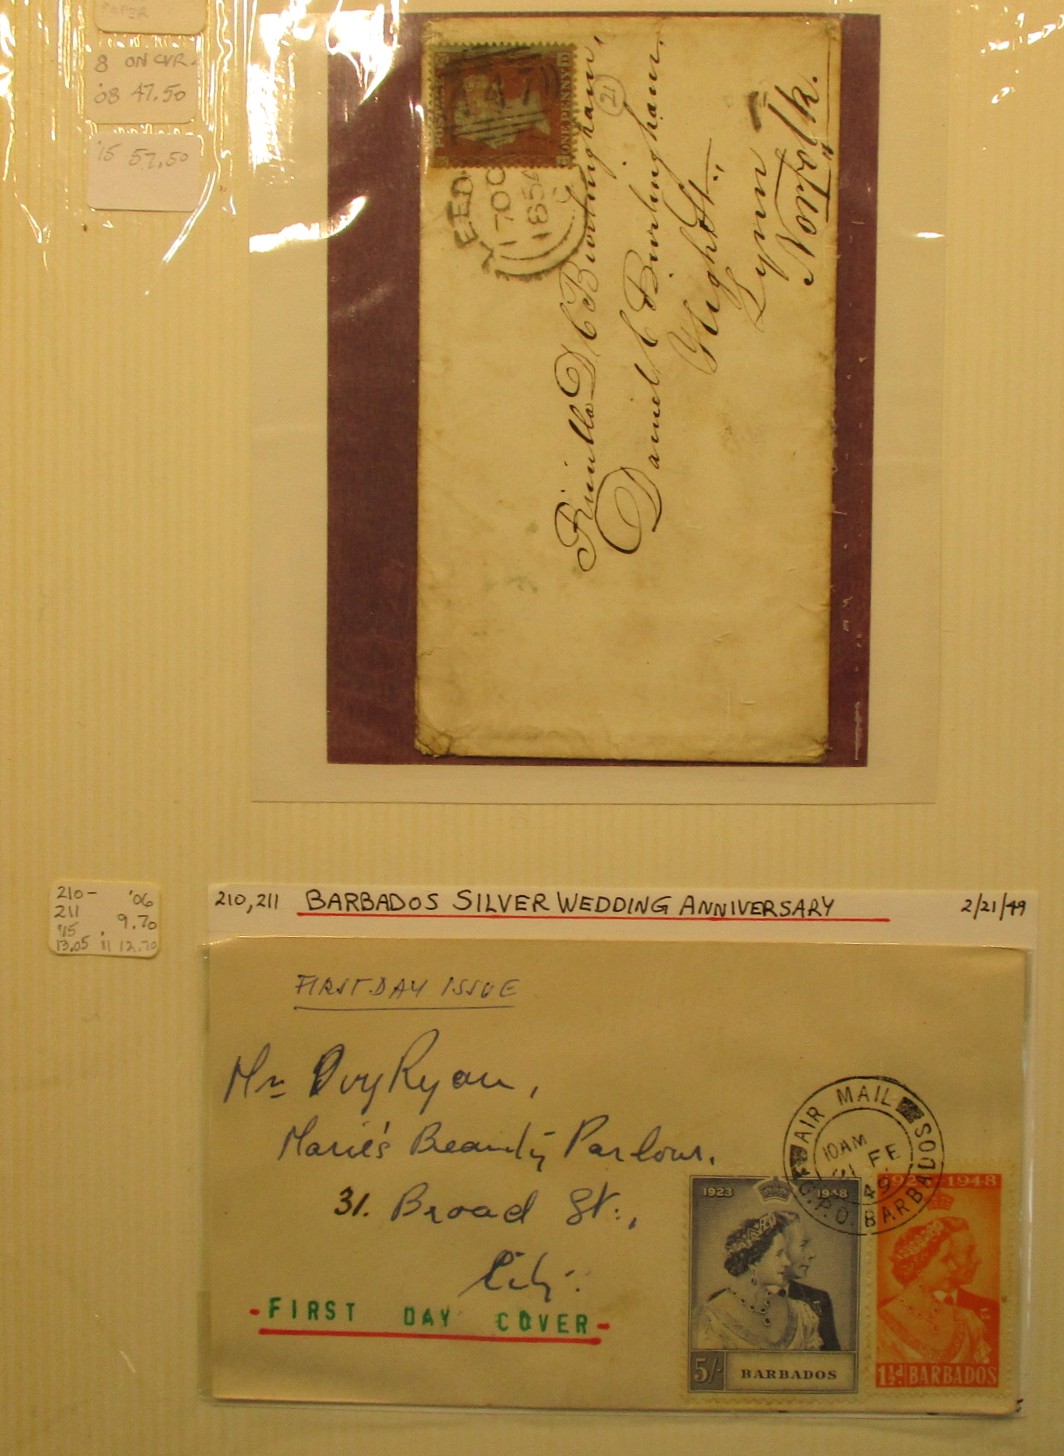 PAPER
8 ON CVR.
'08 47.50
'15 57.50
POSTAGE
ONE PENNY
EED
1854
21
Daniel C Burlingham
High St.,
Lynn
Norfolk.
210- '06
211 9.70
'15
13.05 11 12.70
210,211 BARBADOS SILVER WEDDING ANNIVERSARY 2/21/49
FIRST DAY ISSUE
Ryan,
Marie's Beauty Parlour,
31. Broad St.,
City.
-FIRST DAY COVER-
AIR MAIL
10AM
21 FE
49
G.P.O. BARBADOS
1923 1948
5/- BARBADOS
1923-1948
1½d BARBADOS